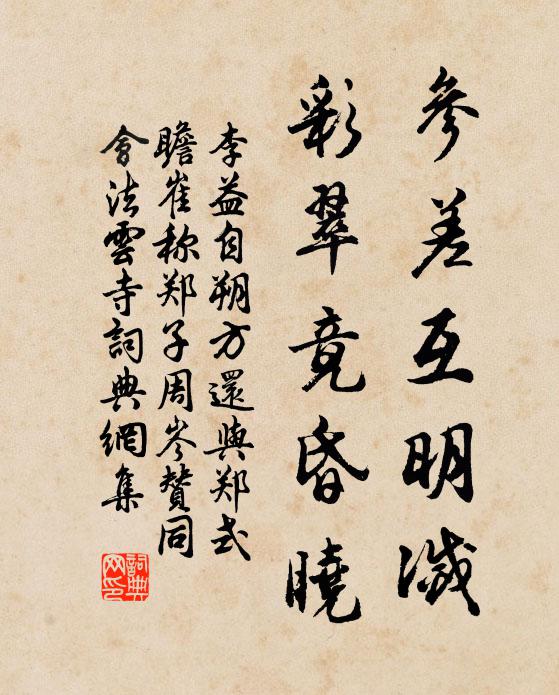 參差互明滅
彩翠竟昏曉
李益自朔方還與郑式
瞻崔称郑子周岑贊同
會法雲寺詞典網集
詞典网印